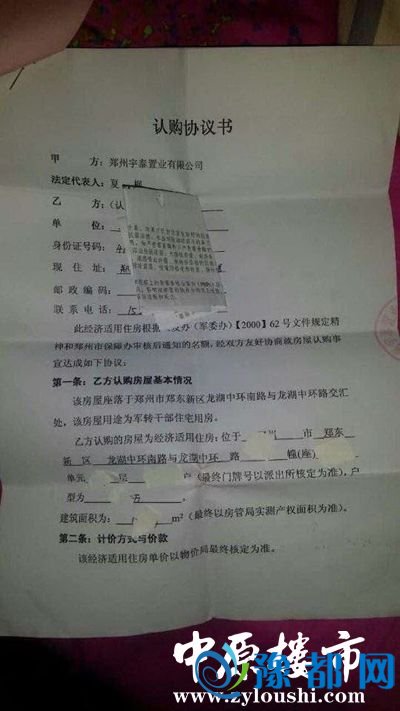 认购协议书
甲 方：郑州宇泰置业有限公司
法定代表人：夏
乙 方：(认
单 位：
身份证号码：
现 住 址：
邮 政 编 码：
联 系 电 话：15
此经济适用住房根据 发办（军委办）【2000】62号文件规定精
神和郑州市保障办审核后通知的名额，经双方友好协商就房屋认购事
宜达成如下协议：
第一条：乙方认购房屋基本情况
该房屋座落于郑州市郑东新区龙湖中环南路与龙湖中环路交汇
处，该房屋用途为军转干部住宅用房。
乙方认购的房屋为经济适用住房：位于 市 郑东
新 区 龙湖中环南路与龙湖中环 路 幢(座)
单元 层 户（最终门牌号以派出所核定为准），户
型为
建筑面积为： m²（最终以房管局实测产权面积为准）。
第二条：计价方式与价款
该经济适用住房单价以物价局最终核定为准。
中原楼市
豫都网
www.zyloushi.com